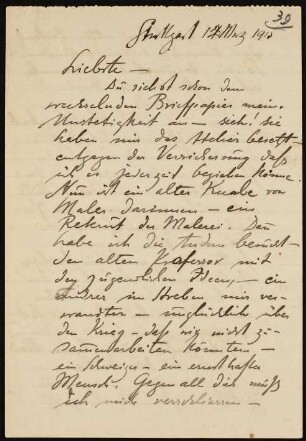 39
Stuttgart 14 März 191
Liebste –
Du siehst schon dem
wechselnden Briefpapier meine
Unstetigkeit an – sieh! sie
haben mir das Atelier besetzt –
entgegen der Versicherung daß
ich es jederzeit beziehen könne.
Nun ist ein alter Knabe von
Maler darinnen – ein
Rekrut der Malerei. Da
habe ich die Andern
den alten Professor mit
den jugendlichen Ideen, – ein
andrer im Streben mir ver-
wandter – unglücklich über
den Krieg – daß wir nicht zu-
sammenarbeiten könnten –
ein Schweizer – ein ernsthafter
Mensch. Gegen all das muß
ich mich verschliessen –